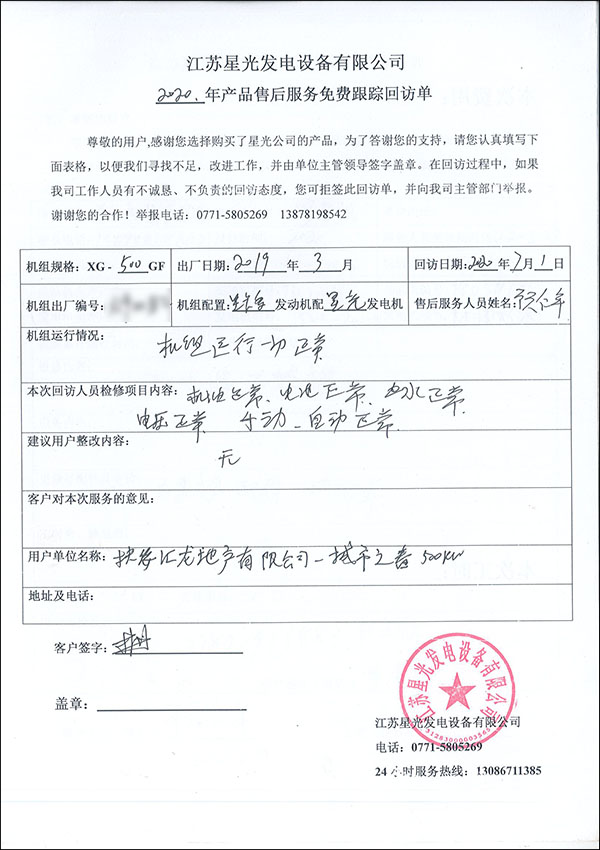 江苏星光发电设备有限公司
2020.年产品售后服务免费跟踪回访单
尊敬的用户,感谢您选择购买了星光公司的产品，为了答谢您的支持，请您认真填写下
面表格，以便我们寻找不足，改进工作，并由单位主管领导签字盖章。在回访过程中，如果
我司工作人员有不诚恳、不负责的回访态度，您可拒签此回访单，并向我司主管部门举报。
谢谢您的合作！举报电话：0771-5805269 13878198542
机组规格：XG-500GF 出厂日期:2019 年 3 月 回访日期:2020 年7月1日
机组出厂编号: 机组配置: 发动机配星光发电机 售后服务人员姓名:
机组运行情况: 机组运行一切正常
本次回访人员检修项目内容: 机油正常、电池正常、水正常
电压正常 手动、自动正常
建议用户整改内容:
无
客户对本次服务的意见:
用户单位名称: 扶绥汇龙地产有限公司-城市之春500KW
地址及电话:
客户签字:
盖章:
江苏星光发电设备有限公司
江苏星光发电设备有限公司
电话: 0771-5805269
24小时服务热线: 13086711385